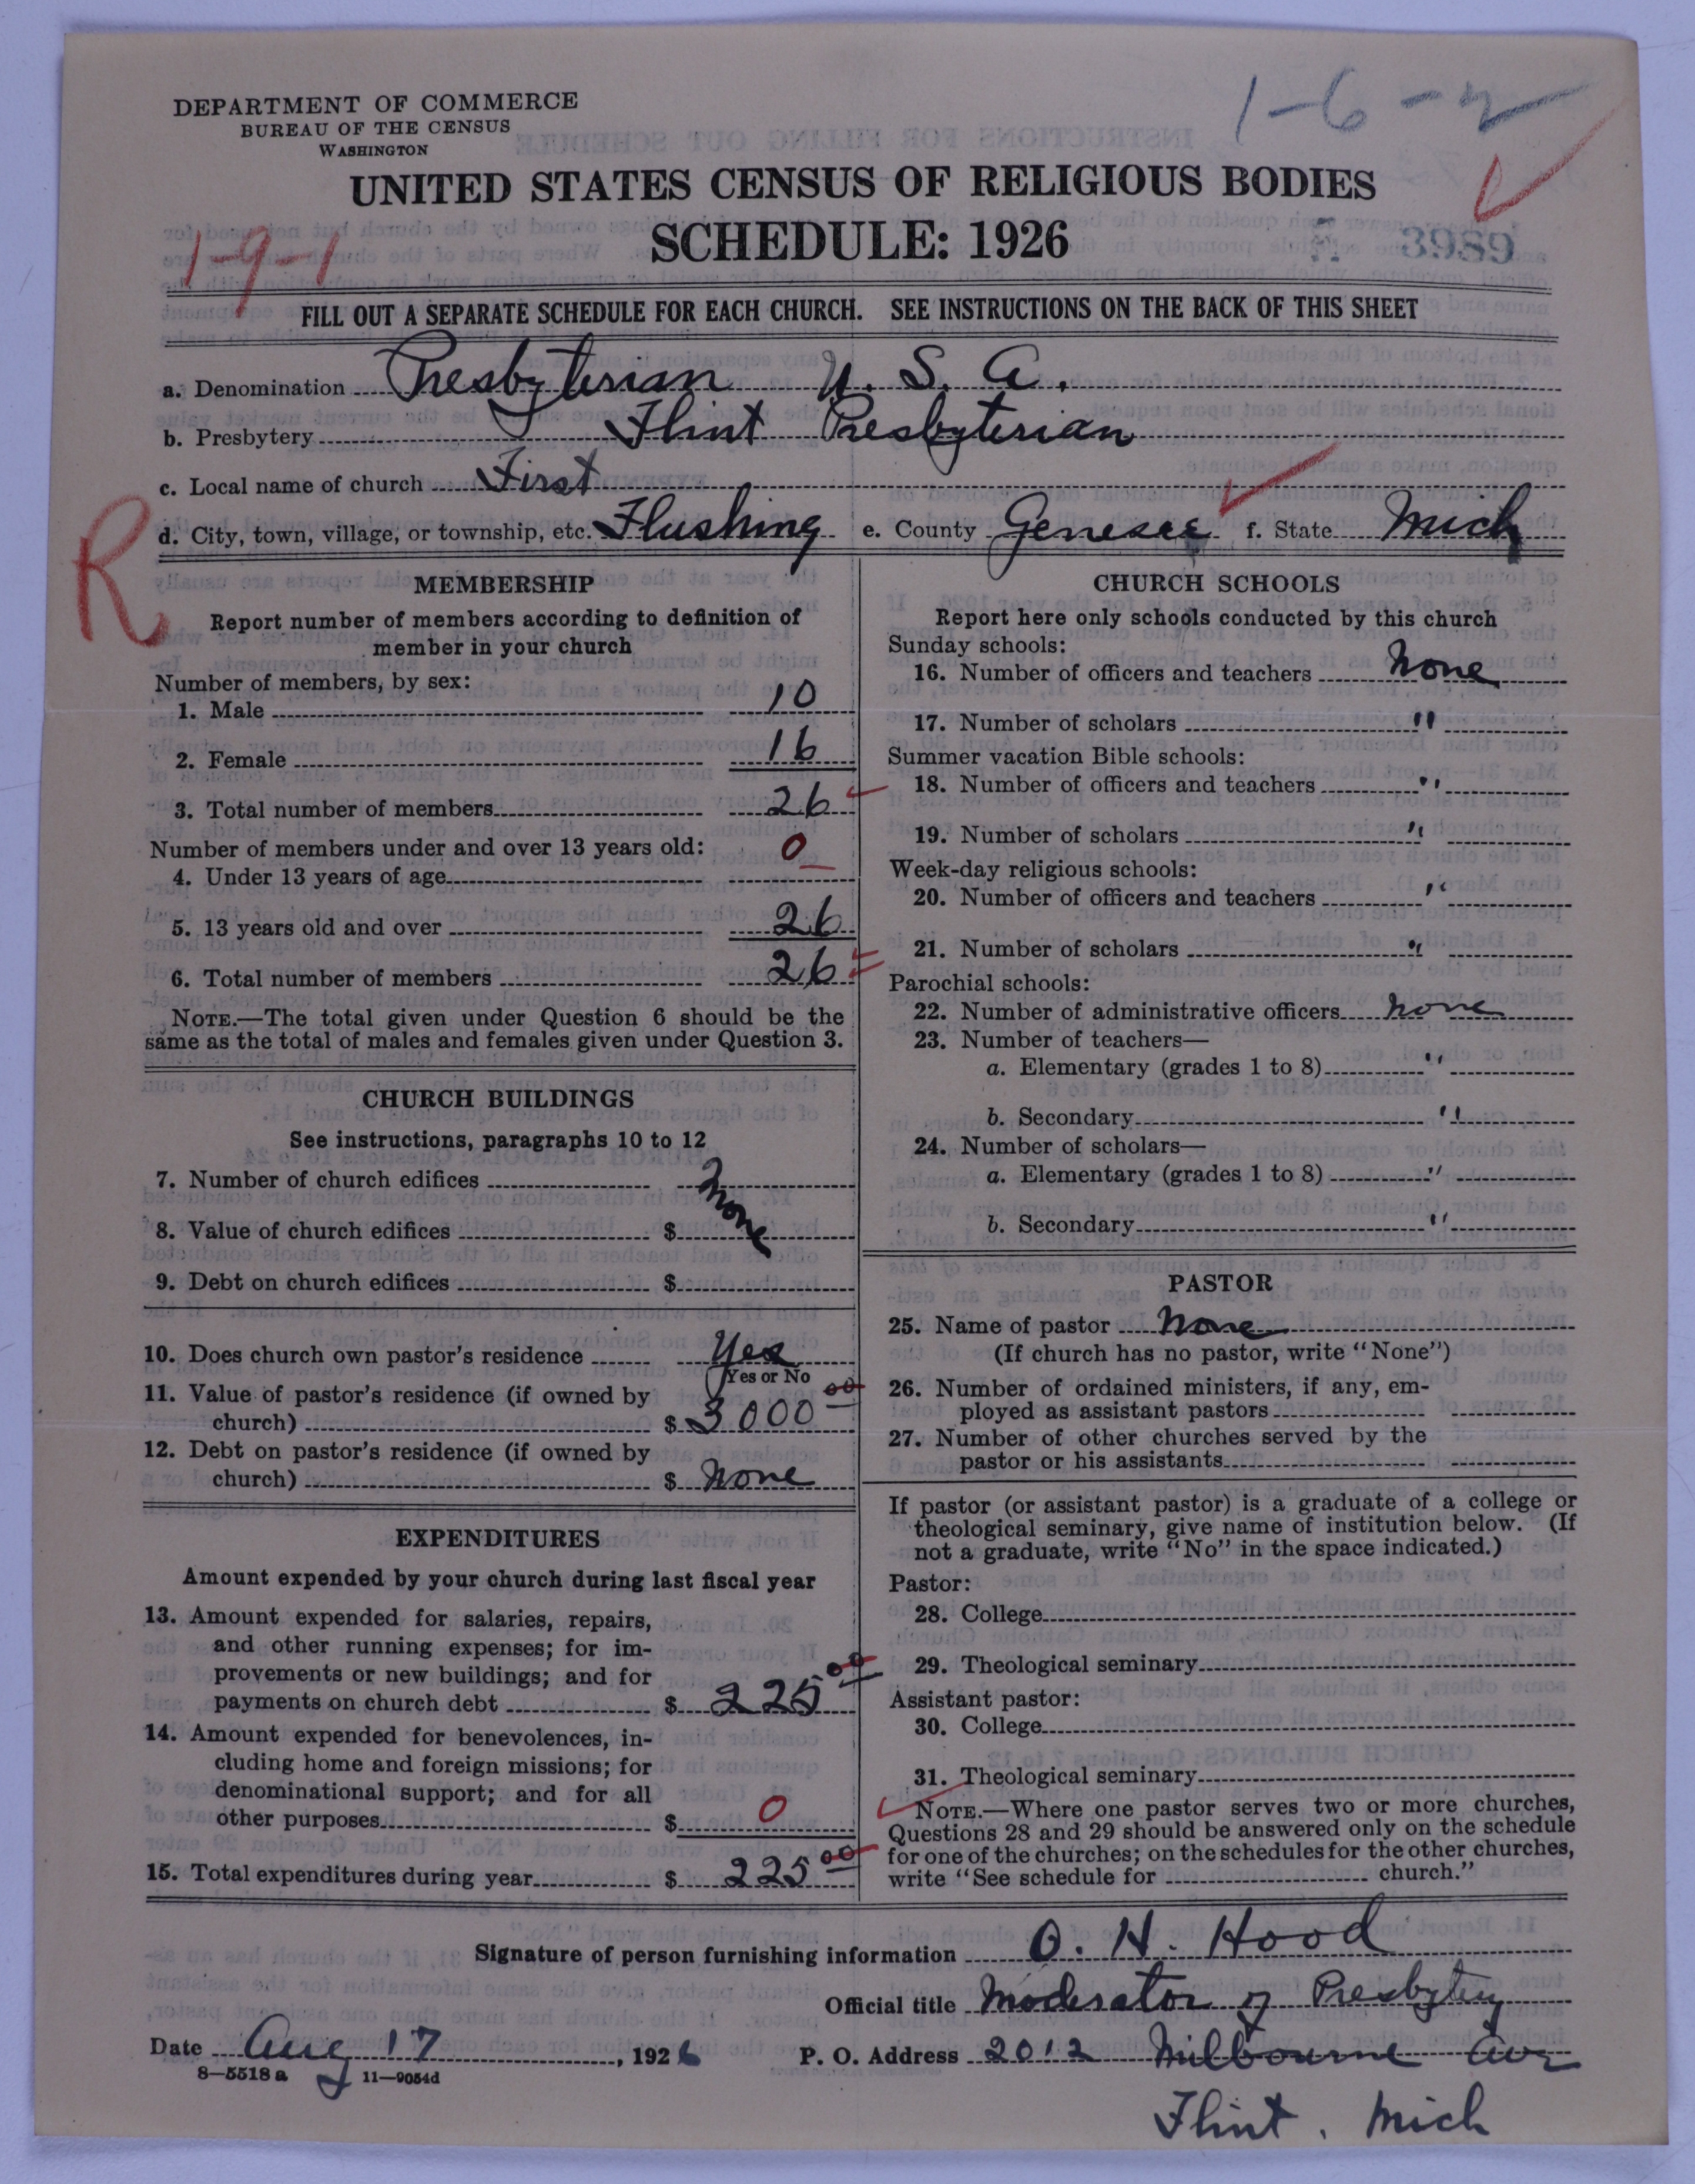 1-6-2
DEPARTMENT OF COMMERCE
BUREAU OF THE CENSUS
WASHINGTON
UNITED STATES CENSUS OF RELIGIOUS BODIES
SCHEDULE: 1926
1-9-1
3989
FILL OUT A SEPARATE SCHEDULE FOR EACH CHURCH. SEE INSTRUCTIONS ON THE BACK OF THIS SHEET
a. Denomination Presbyterian U. S. A.
b. Presbytery Flint Presbyterian
c. Local name of church First
d. City, town, village, or township, etc. Flushing e. County Genesee f. State Mich
R
MEMBERSHIP
Report number of members according to definition of
member in your church
Number of members, by sex:
1. Male 10
2. Female 16
3. Total number of members 26
Number of members under and over 13 years old:
4. Under 13 years of age 0
5. 13 years old and over 26
6. Total number of members 26
NOTE.—The total given under Question 6 should be the
same as the total of males and females given under Question 3.
CHURCH BUILDINGS
See instructions, paragraphs 10 to 12
7. Number of church edifices None
8. Value of church edifices $
9. Debt on church edifices $
10. Does church own pastor's residence Yes
Yes or No
11. Value of pastor's residence (if owned by
church) $ 3000 00
12. Debt on pastor's residence (if owned by
church) $ None
EXPENDITURES
Amount expended by your church during last fiscal year
13. Amount expended for salaries, repairs,
and other running expenses; for im-
provements or new buildings; and for
payments on church debt $ 225 00
14. Amount expended for benevolences, in-
cluding home and foreign missions; for
denominational support; and for all
other purposes $ 0
15. Total expenditures during year $ 225 00
CHURCH SCHOOLS
Report here only schools conducted by this church
Sunday schools:
16. Number of officers and teachers None
17. Number of scholars "
Summer vacation Bible schools:
18. Number of officers and teachers "
19. Number of scholars "
Week-day religious schools:
20. Number of officers and teachers "
21. Number of scholars "
Parochial schools:
22. Number of administrative officers None
23. Number of teachers—
a. Elementary (grades 1 to 8) "
b. Secondary "
24. Number of scholars—
a. Elementary (grades 1 to 8) "
b. Secondary "
PASTOR
25. Name of pastor None
(If church has no pastor, write "None")
26. Number of ordained ministers, if any, em-
ployed as assistant pastors
27. Number of other churches served by the
pastor or his assistants
If pastor (or assistant pastor) is a graduate of a college or
theological seminary, give name of institution below. (If
not a graduate, write "No" in the space indicated.)
Pastor:
28. College
29. Theological seminary
Assistant pastor:
30. College
31. Theological seminary
NOTE.—Where one pastor serves two or more churches,
Questions 28 and 29 should be answered only on the schedule
for one of the churches; on the schedules for the other churches,
write "See schedule for church."
Signature of person furnishing information O. H. Hood
Official title Moderator of Presbytery
Date Aug 17, 1926 P. O. Address 2012 Milbourne Ave
8—5518 a 11—9054d
Flint, Mich